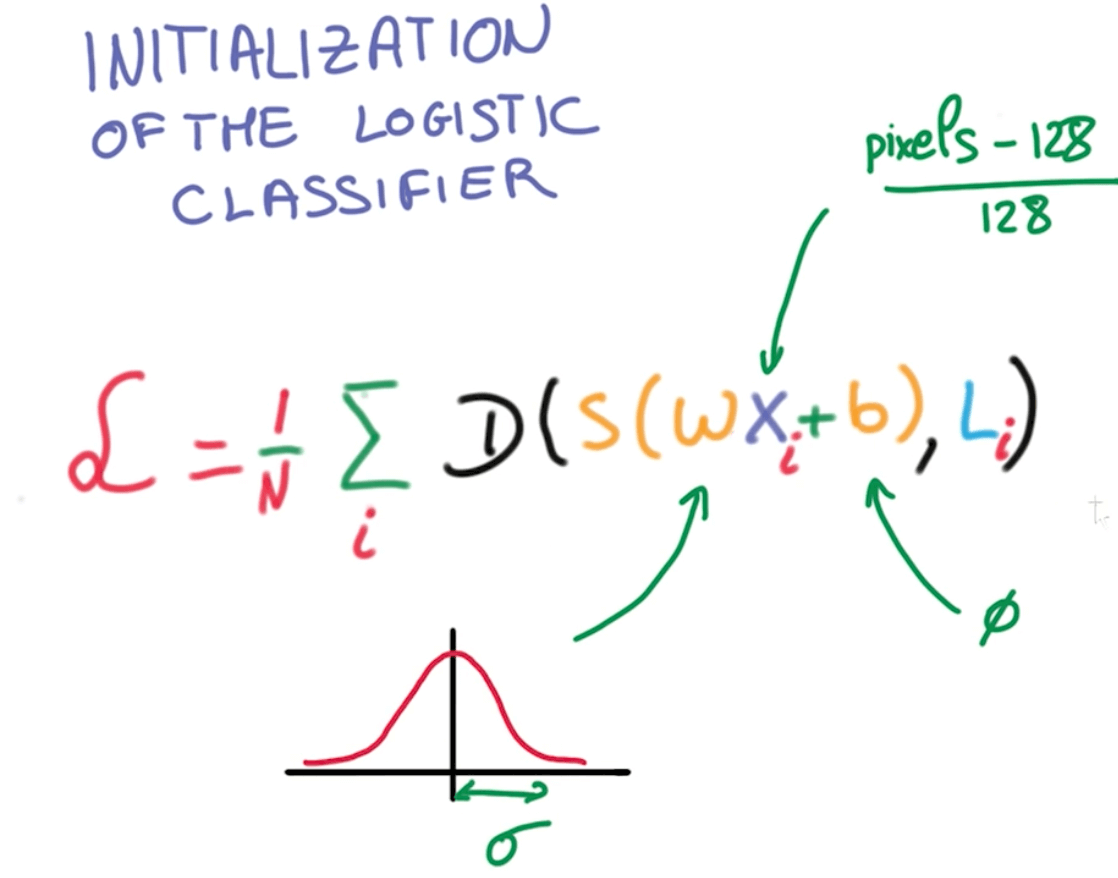 INITIALIZATION
OF THE LOGISTIC
CLASSIFIER
pixels - 128
128
ℒ = 1/N Σ_i D(S(WX_i + b), L_i)
φ
σ